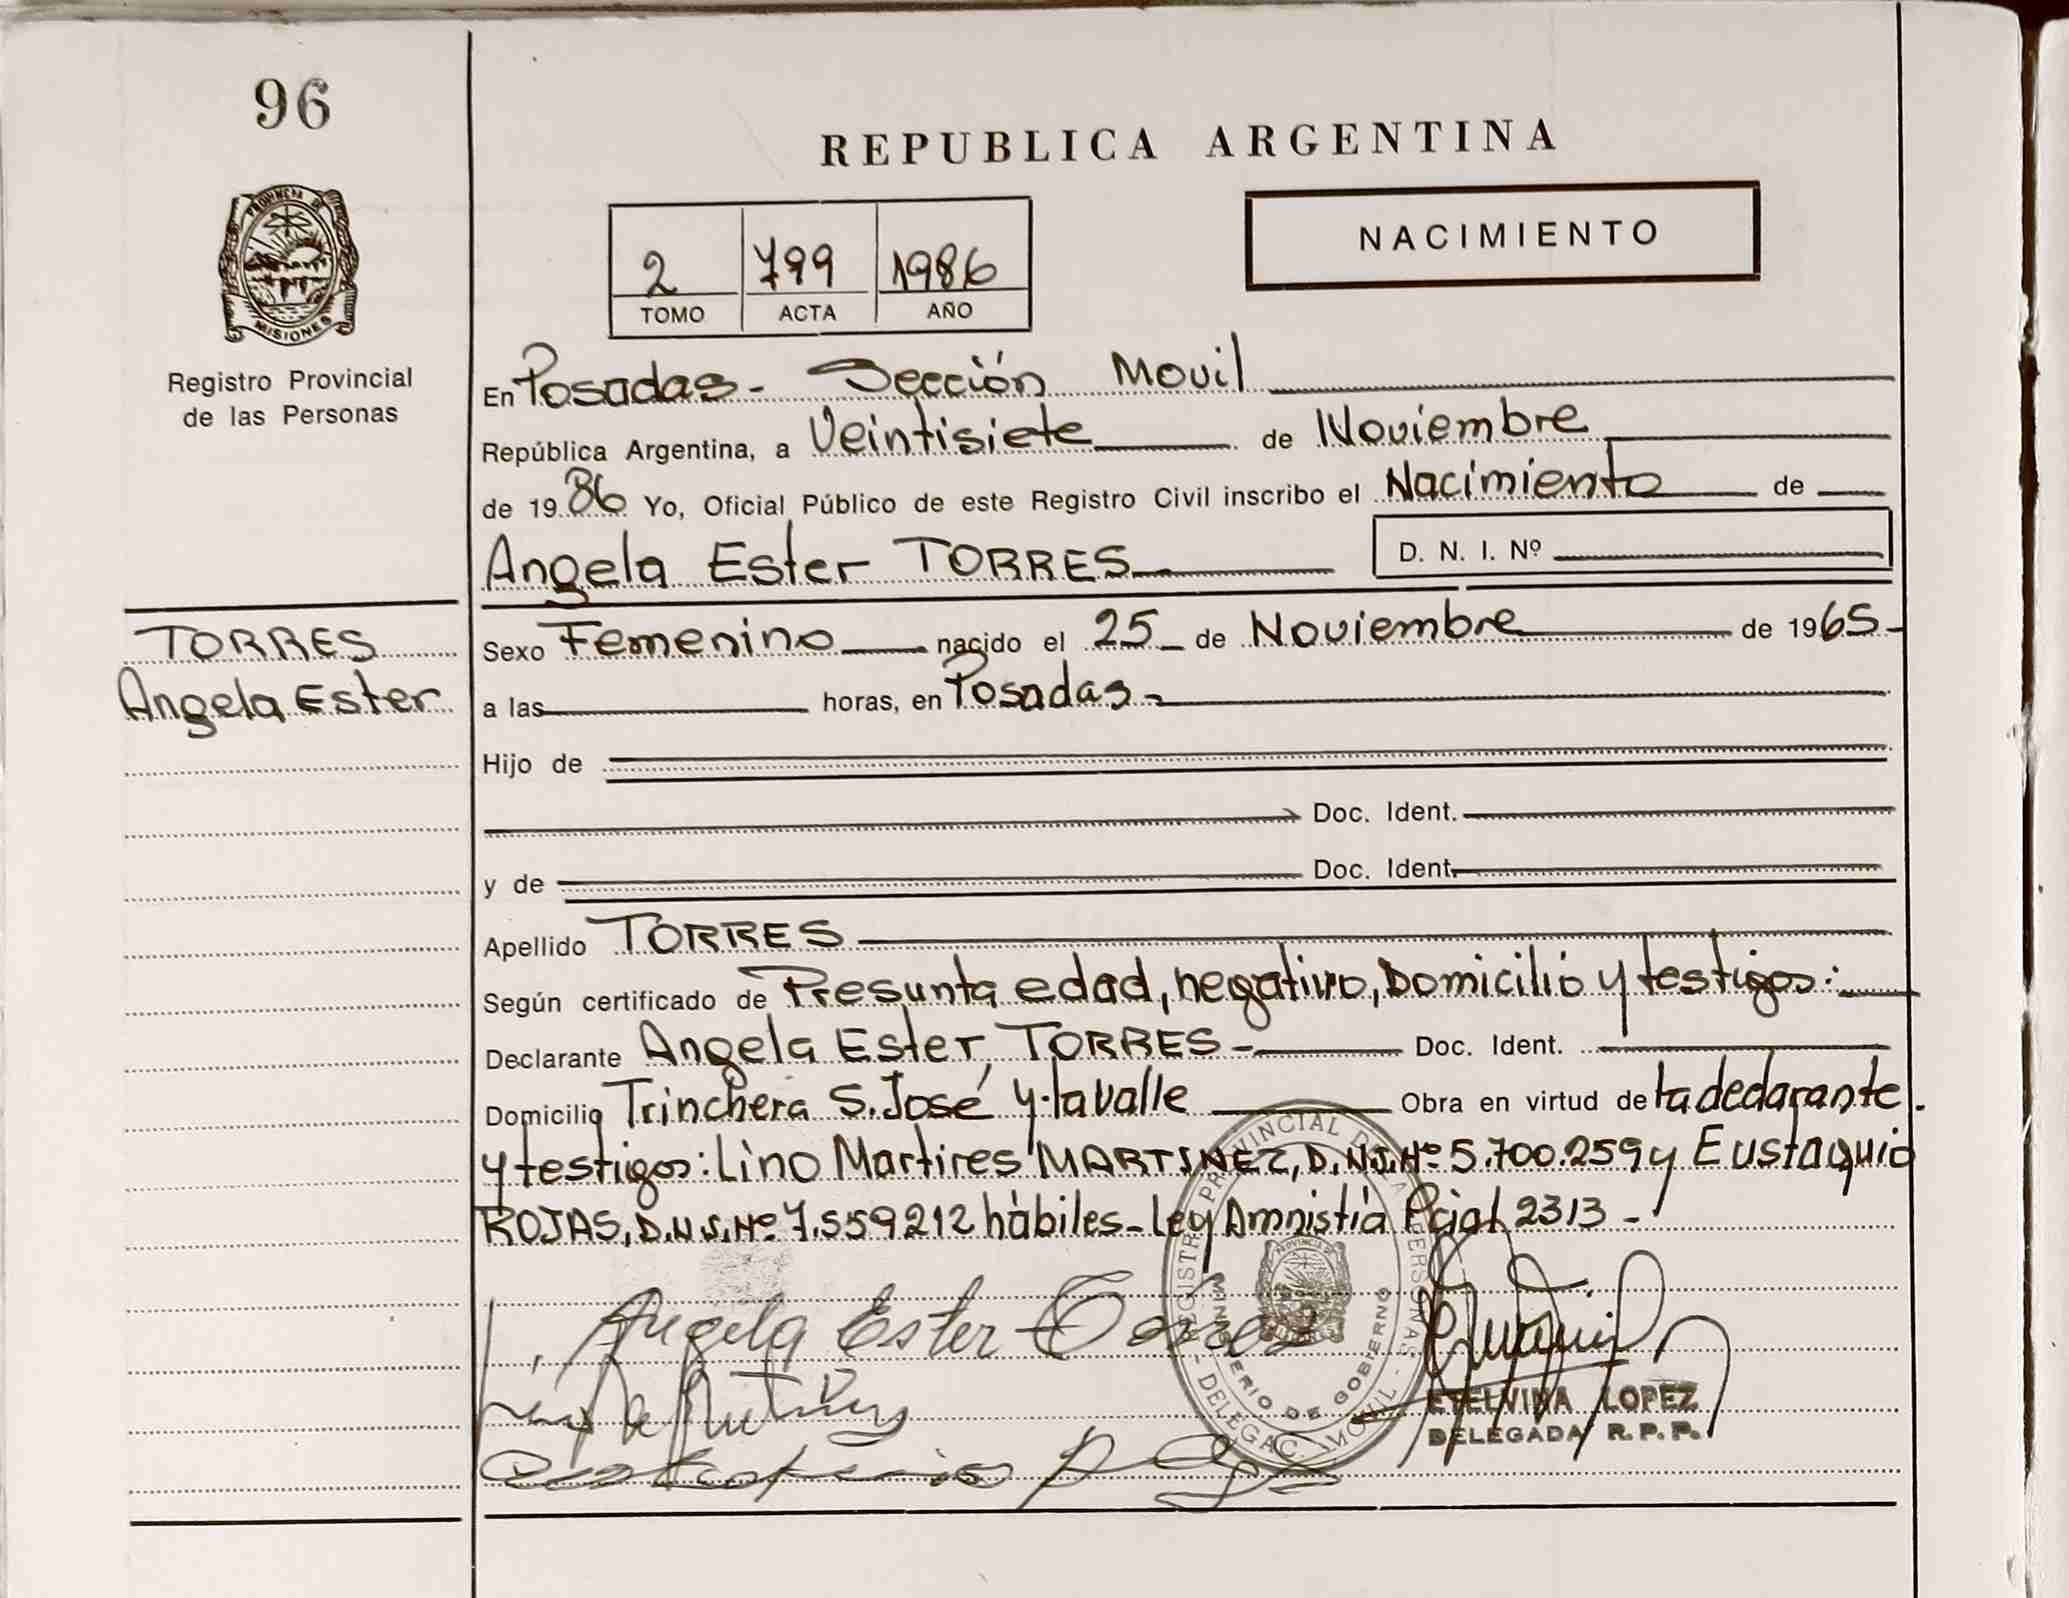 96
REPUBLICA ARGENTINA
PROVINCIA DE
MISIONES
2 799 1986
TOMO ACTA AÑO
NACIMIENTO
Registro Provincial
de las Personas
En Posadas - Sección Movil
República Argentina, a Veintisiete de Noviembre
de 1986 Yo, Oficial Público de este Registro Civil inscribo el Nacimiento de
Angela Ester TORRES D. N. I. Nº
TORRES
Angela Ester
Sexo Femenino nacido el 25 de Noviembre de 1965
a las horas, en Posadas
Hijo de
Doc. Ident.
y de Doc. Ident.
Apellido TORRES
Según certificado de Presunta edad, negativo, Domicilio y testigos:
Declarante Angela Ester TORRES Doc. Ident.
Domicilio Trinchera S. José y Lavalle Obra en virtud de la declarante
y testigos: Lino Martires MARTINEZ, D.N.I. Nº 5.700.259 y Eustaquio
ROJAS, D.N.I. Nº 7.559212 hàbiles - Ley Amnistia Pcial 2313 -
REGISTRO PROVINCIAL DE LAS PERSONAS
MINISTERIO DE GOBIERNO
- DELEGAC. MOVIL -
Angela Ester Torres
ETELVINA LOPEZ
DELEGADA R. P. P.